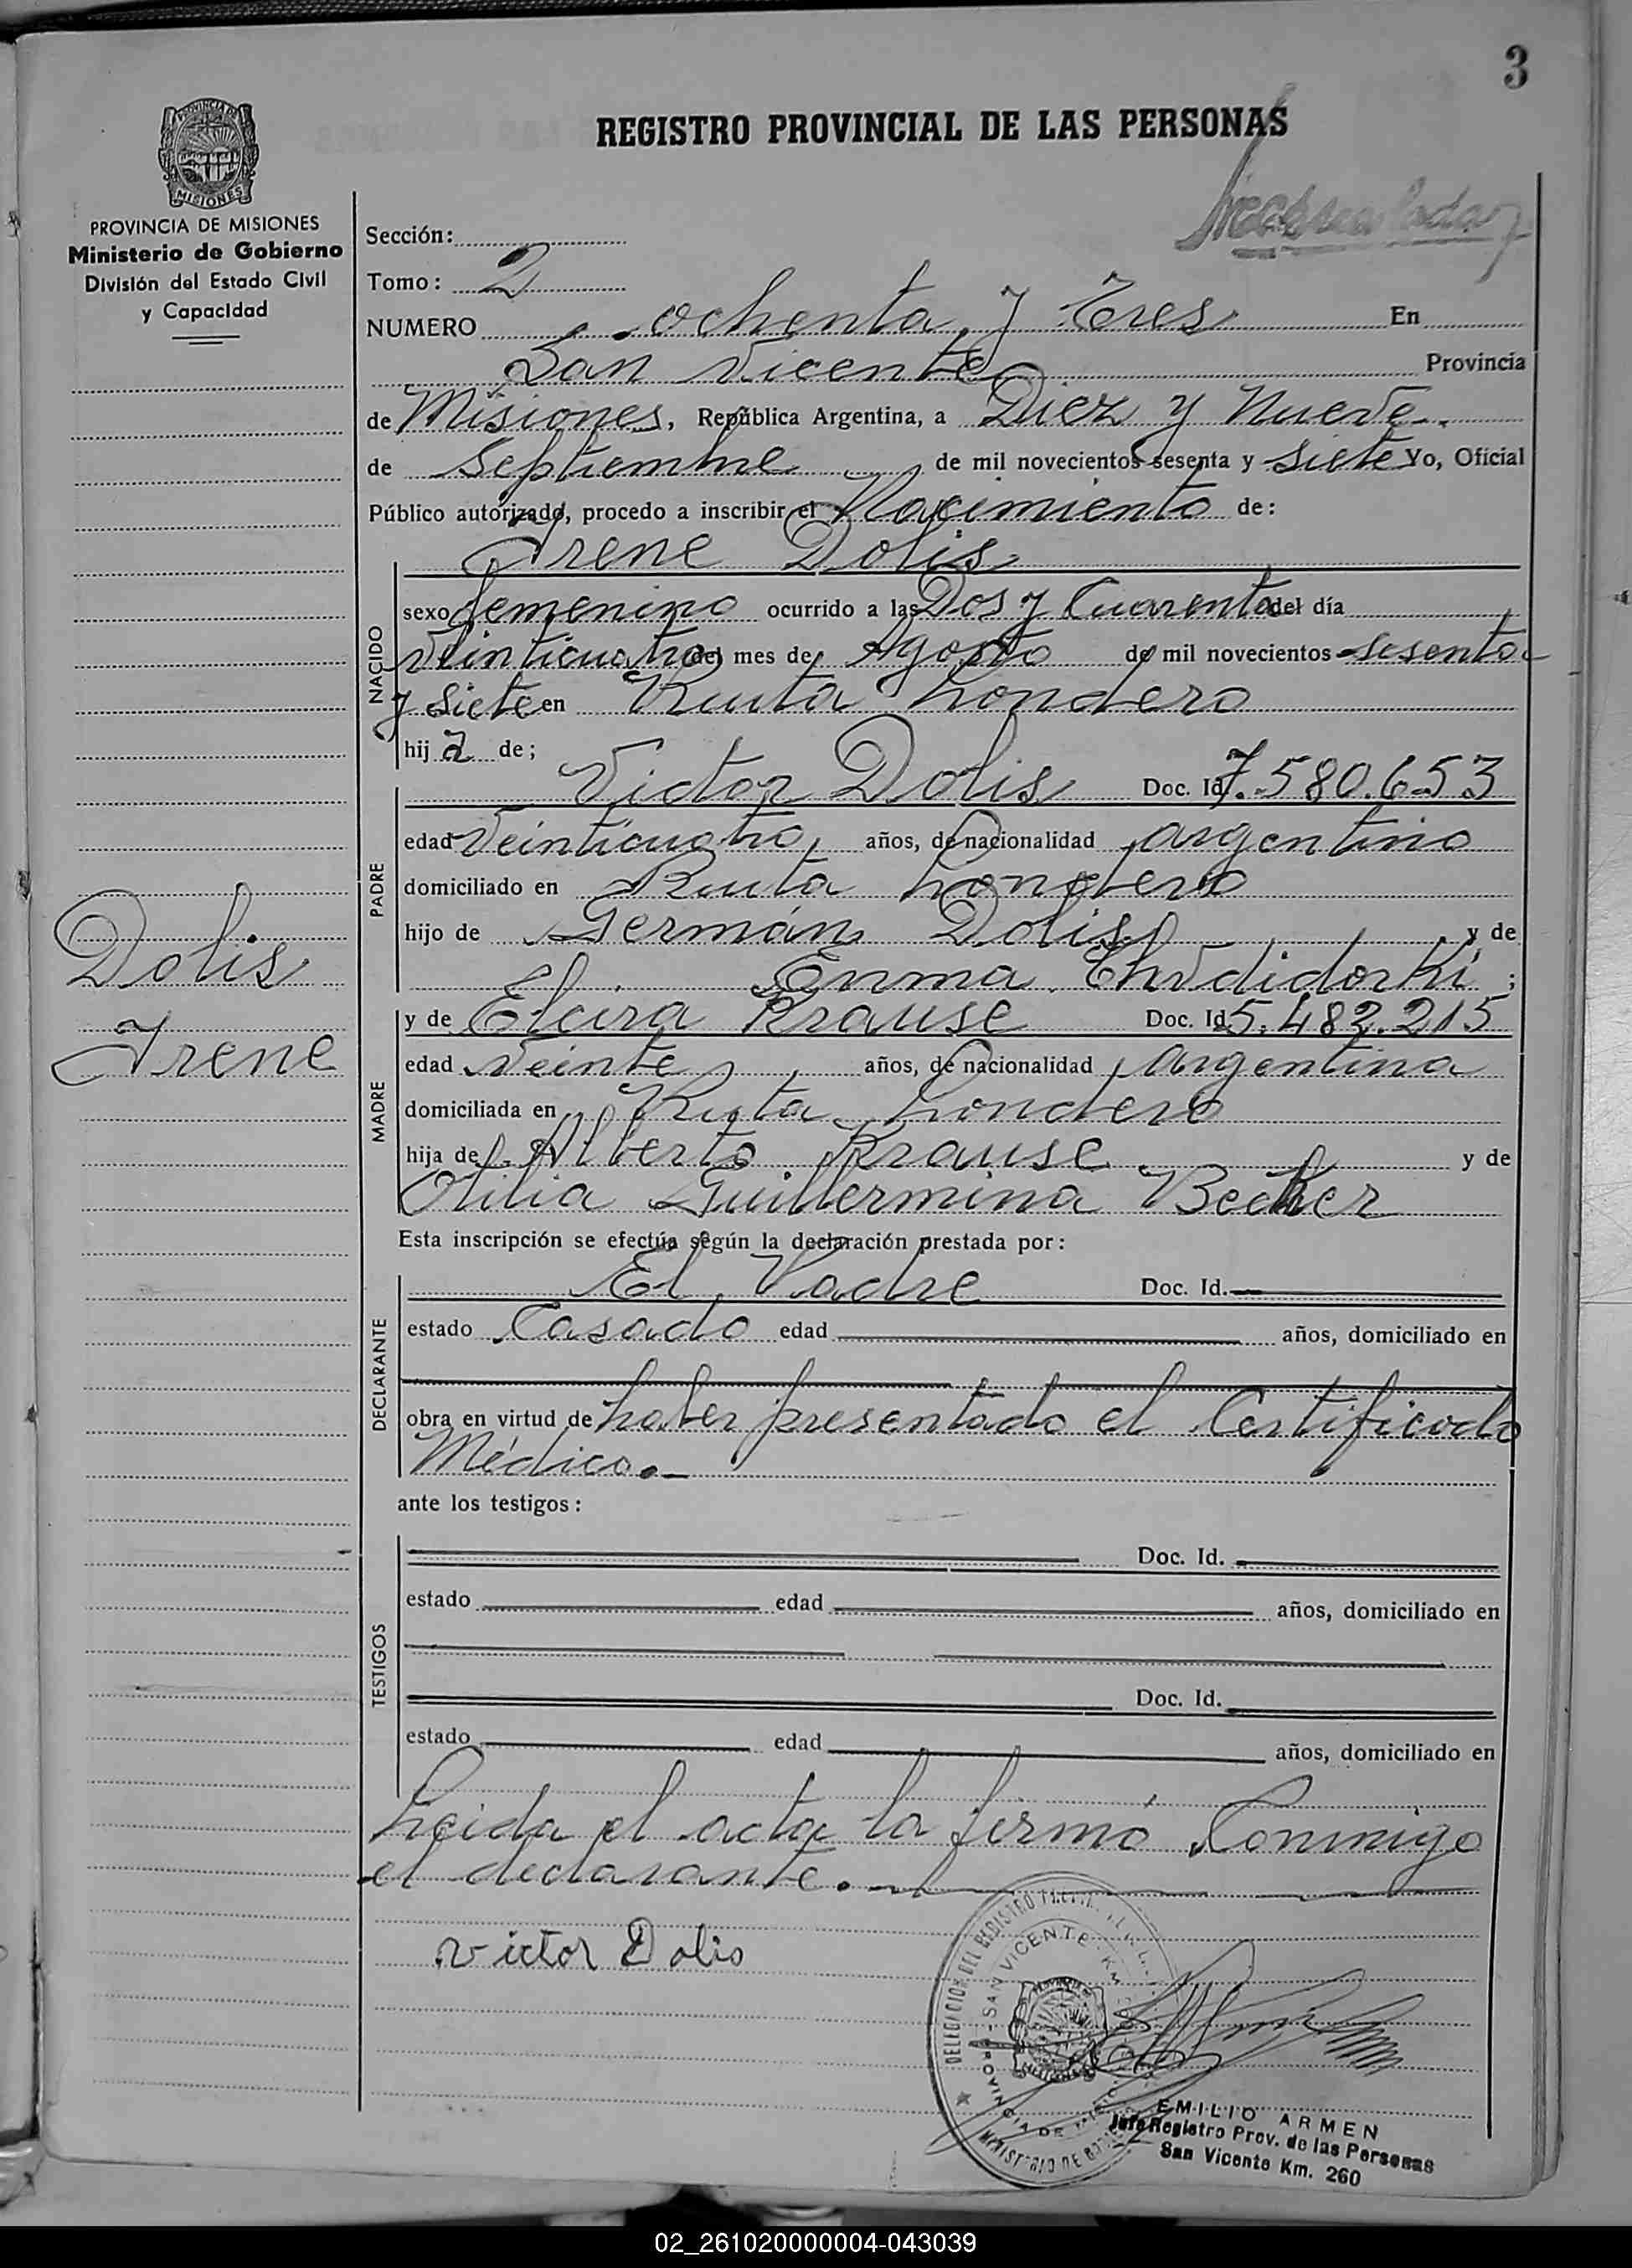 3
REGISTRO PROVINCIAL DE LAS PERSONAS
PROVINCIA DE MISIONES
MISIONES
PROVINCIA DE MISIONES
Ministerio de Gobierno
División del Estado Civil
y Capacidad
Sección:
Tomo: 2
NUMERO ochenta y Tres En
San Vicente Provincia
de Misiones, República Argentina, a Diez y Nueve
de Septiembre de mil novecientos sesenta y Siete Yo, Oficial
Público autorizado, procedo a inscribir el Nacimiento de:
Irene Dolis
NACIDO
sexo femenino ocurrido a las Dos y Cuarenta del día
Veinticuatro del mes de Agosto de mil novecientos sesenta
y Siete en Ruta Londero
hija de;
PADRE
Victor Dolis Doc. Id. 7.580.653
edad Veinticuatro años, de nacionalidad argentino
domiciliado en Ruta Londero
hijo de Germán Dolis y de
Enma ;
MADRE
y de Elcira Krause Doc. Id. 5.482.215
edad Veinte años, de nacionalidad argentina
domiciliada en Ruta Londero
hija de Alberto Krause y de
Otilia Guillermina Becker
Dolis
Irene
Esta inscripción se efectúa según la declaración prestada por:
DECLARANTE
El Padre Doc. Id.
estado Casado edad años, domiciliado en
obra en virtud de haber presentado el Certificado
Médico.-
ante los testigos:
TESTIGOS
Doc. Id.
estado edad años, domiciliado en
Doc. Id.
estado edad años, domiciliado en
Leida el acta la firmó Conmigo
el declarante.
victor Dolis
DELEGACION DEL REGISTRO
SAN VICENTE - KM
PROVINCIA DE
MINISTERIO DE
EMILIO ARMEN
Jefe Registro Prov. de las Personas
San Vicente Km. 260
02_261020000004-043039